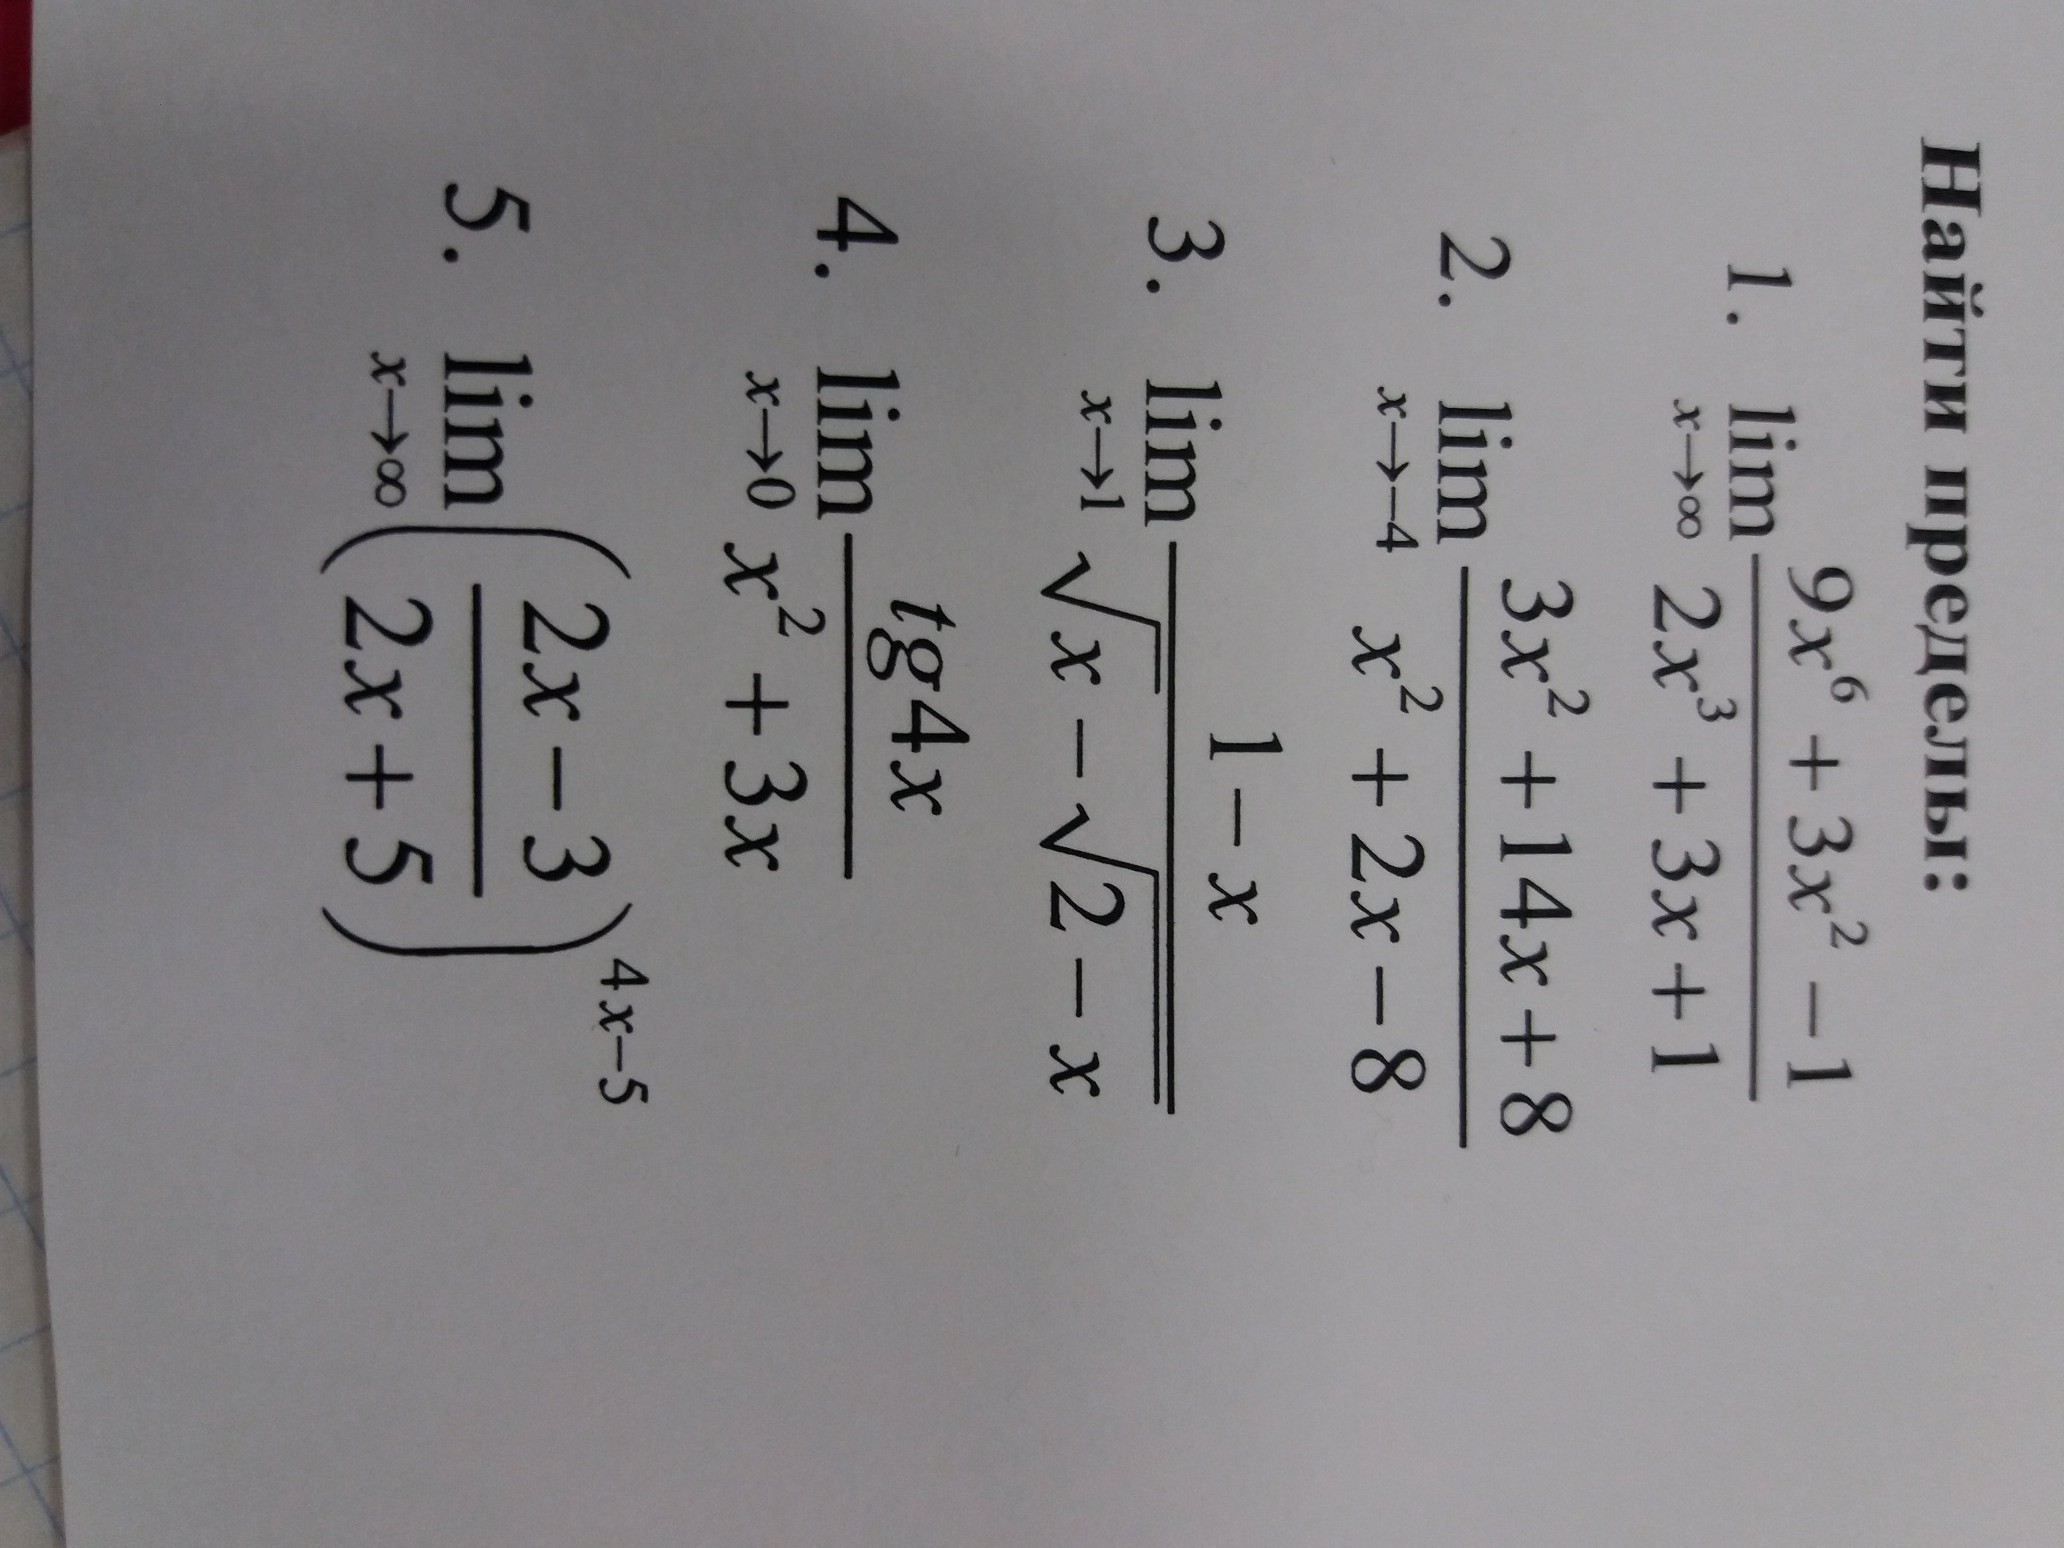 Найти пределы:
1. lim x→∞ (9x⁶ + 3x² − 1)/(2x³ + 3x + 1)
2. lim x→−4 (3x² + 14x + 8)/(x² + 2x − 8)
3. lim x→1 (1 − x)/(√x − √(2 − x))
4. lim x→0 tg4x/(x² + 3x)
5. lim x→∞ ((2x − 3)/(2x + 5))⁴ˣ⁻⁵